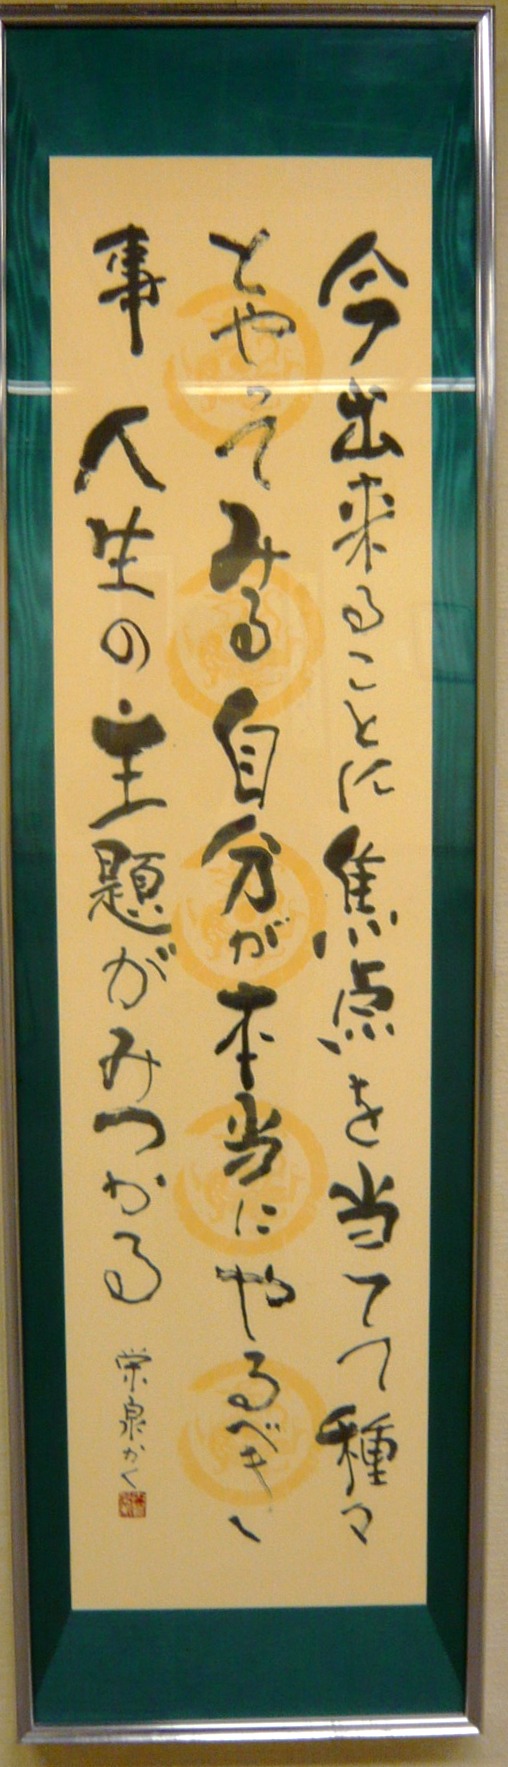 今出来ることに焦点を当てて種々
とやってみる自分が本当にやるべき
事 人生の主題がみつかる
栄泉かく